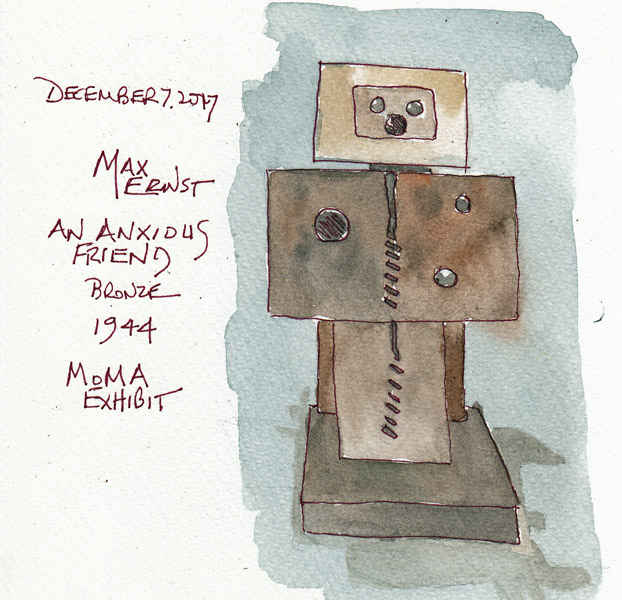 DECEMBER 7, 2017
MAX
ERNST
AN ANXIOUS
FRIEND
BRONZE
1944
MOMA
EXHIBIT